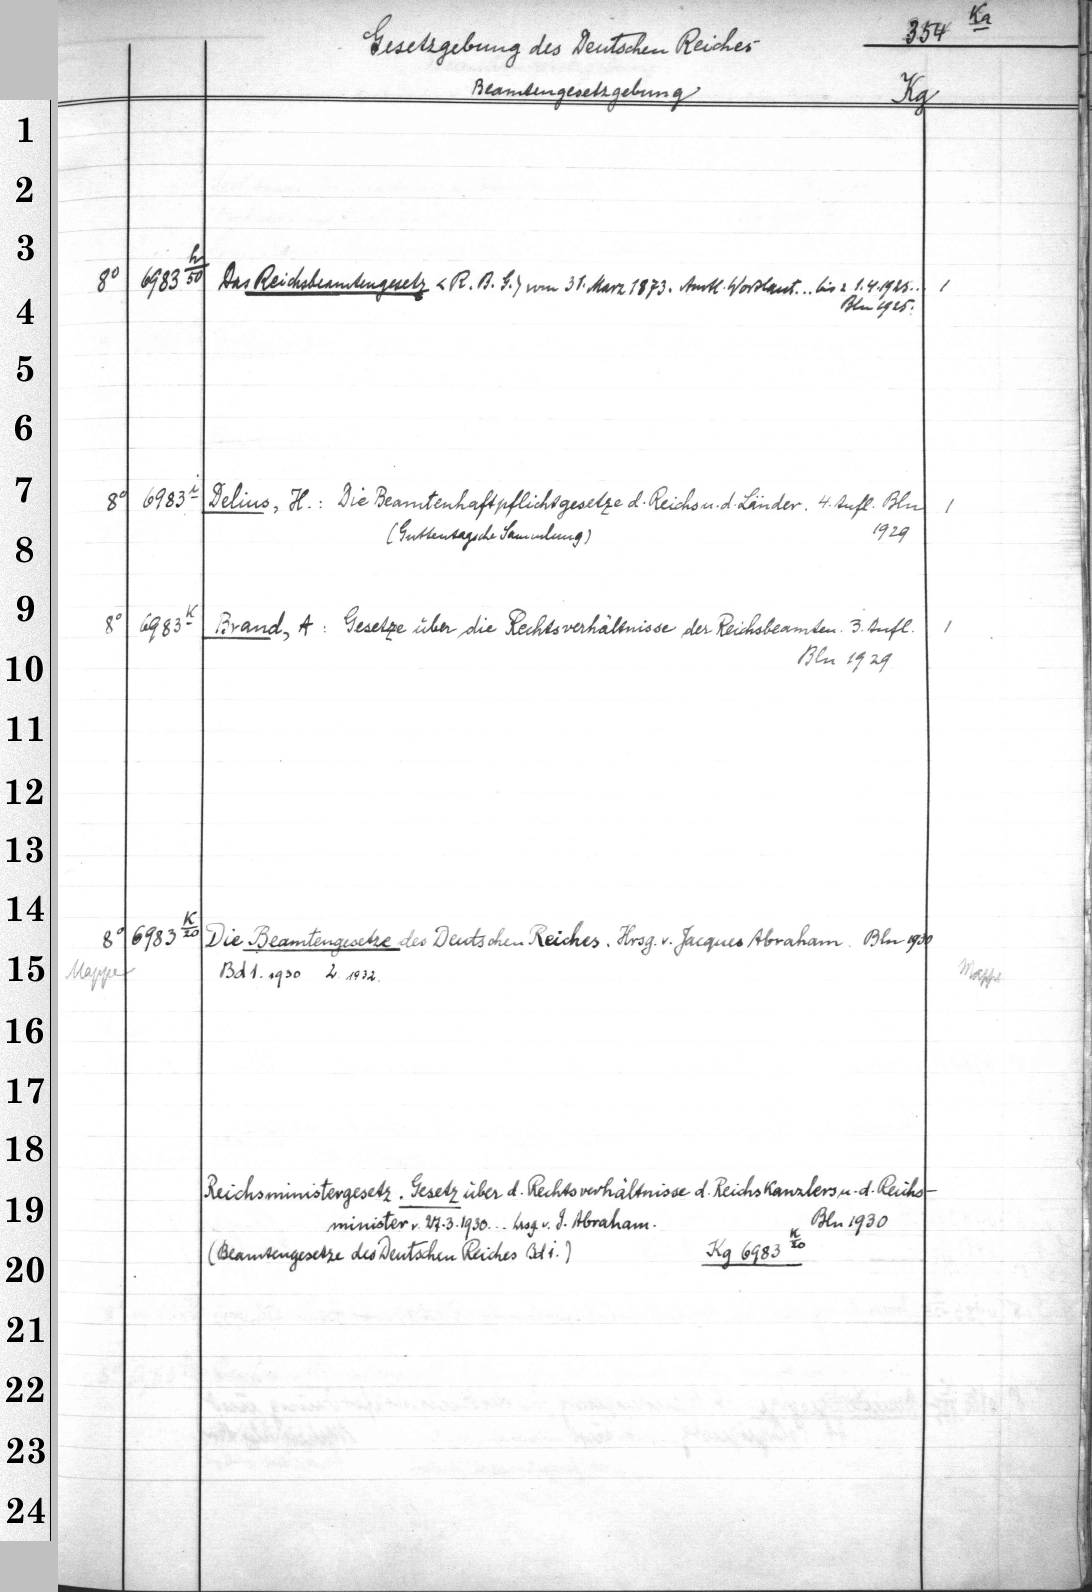 Gesetzgebung des Deutschen Reiches 354 Ka
Beamtengesetzgebung Kg
1
2
3
8° 6983 h/50 Das Reichsbeamtengesetz <R. B. G.> vom 31. März 1873. Amtl. Wortlaut... bis z. 1.4.1925... 1
Bln 1925.
4
5
6
7
8° 6983 i Delius, H.: Die Beamtenhaftpflichtgesetze d. Reichs u. d. Länder. 4. Aufl. Bln 1
(Guttentagsche Sammlung) 1929
8
9
8° 6983 K Brand, A: Gesetze über die Rechtsverhältnisse der Reichsbeamten. 3. Aufl. 1
Bln 1929
10
11
12
13
14
8° 6983 K/20 Die Beamtengesetze des Deutschen Reiches. Hrsg. v. Jacques Abraham. Bln 1930
15
Mappe Bd 1. 1930 2. 1932. Mappe
16
17
18
Reichsministergesetz. Gesetz über d. Rechtsverhältnisse d. Reichskanzlers u. d. Reichs-
19
minister v. 27.3.1930... hrsg. v. J. Abraham. Bln 1930
(Beamtengesetze des Deutschen Reiches Bd 1.) Kg 6983 K/20
20
21
22
23
24